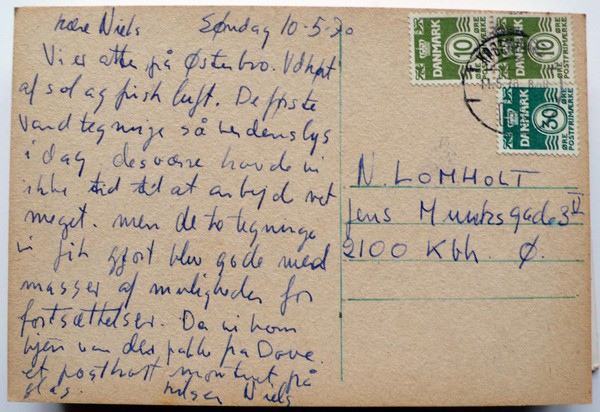 kære Niels Søndag 10-5-70
Vi er atter på Østerbro. Udhvilt
af sol og frisk luft. De første
vandtegninge så verdenslys
i dag. desværre havde vi
ikke tid til at arbejde ret
meget. men de to tegninge
vi fik gjort blev gode med
masser af muligheder for
fortsættelser. Da vi kom
hjem var der pakke fra Dave.
et postkort monteret på
glas. hilsen Niels
10 DANMARK ØRE POSTFRIMÆRKE
10 DANMARK ØRE POSTFRIMÆRKE
30 DANMARK ØRE POSTFRIMÆRKE
N. LOMHOLT
Jens Munksgade 3 V
2100 Kbh. Ø.